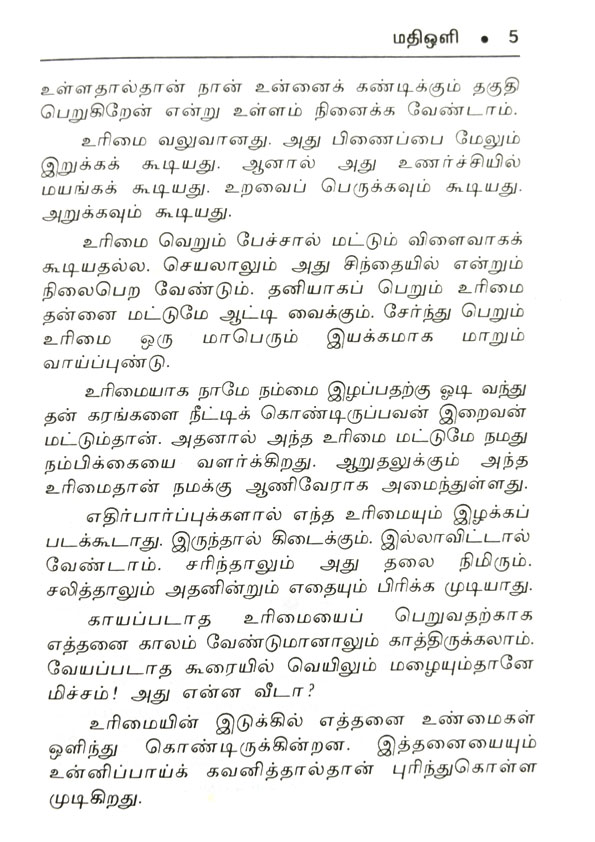 மதிஒளி • 5
உள்ளதால்தான் நான் உன்னைக் கண்டிக்கும் தகுதி
பெறுகிறேன் என்று உள்ளம் நினைக்க வேண்டாம்.
உரிமை வலுவானது. அது பிணைப்பை மேலும்
இறுக்கக் கூடியது. ஆனால் அது உணர்ச்சியில்
மயங்கக் கூடியது. உறவைப் பெருக்கவும் கூடியது.
அறுக்கவும் கூடியது.
உரிமை வெறும் பேச்சால் மட்டும் விளைவாகக்
கூடியதல்ல. செயலாலும் அது சிந்தையில் என்றும்
நிலைபெற வேண்டும். தனியாகப் பெறும் உரிமை
தன்னை மட்டுமே ஆட்டி வைக்கும். சேர்ந்து பெறும்
உரிமை ஒரு மாபெரும் இயக்கமாக மாறும்
வாய்ப்புண்டு.
உரிமையாக நாமே நம்மை இழப்பதற்கு ஓடி வந்து
தன் கரங்களை நீட்டிக் கொண்டிருப்பவன் இறைவன்
மட்டும்தான். அதனால் அந்த உரிமை மட்டுமே நமது
நம்பிக்கையை வளர்க்கிறது. ஆறுதலுக்கும் அந்த
உரிமைதான் நமக்கு ஆணிவேராக அமைந்துள்ளது.
எதிர்பார்ப்புக்களால் எந்த உரிமையும் இழக்கப்
படக்கூடாது. இருந்தால் கிடைக்கும். இல்லாவிட்டால்
வேண்டாம். சரிந்தாலும் அது தலை நிமிரும்.
சலித்தாலும் அதனின்றும் எதையும் பிரிக்க முடியாது.
காயப்படாத உரிமையைப் பெறுவதற்காக
எத்தனை காலம் வேண்டுமானாலும் காத்திருக்கலாம்.
வேயப்படாத கூரையில் வெயிலும் மழையும்தானே
மிச்சம்! அது என்ன வீடா?
உரிமையின் இடுக்கில் எத்தனை உண்மைகள்
ஒளிந்து கொண்டிருக்கின்றன. இத்தனையையும்
உன்னிப்பாய்க் கவனித்தால்தான் புரிந்துகொள்ள
முடிகிறது.